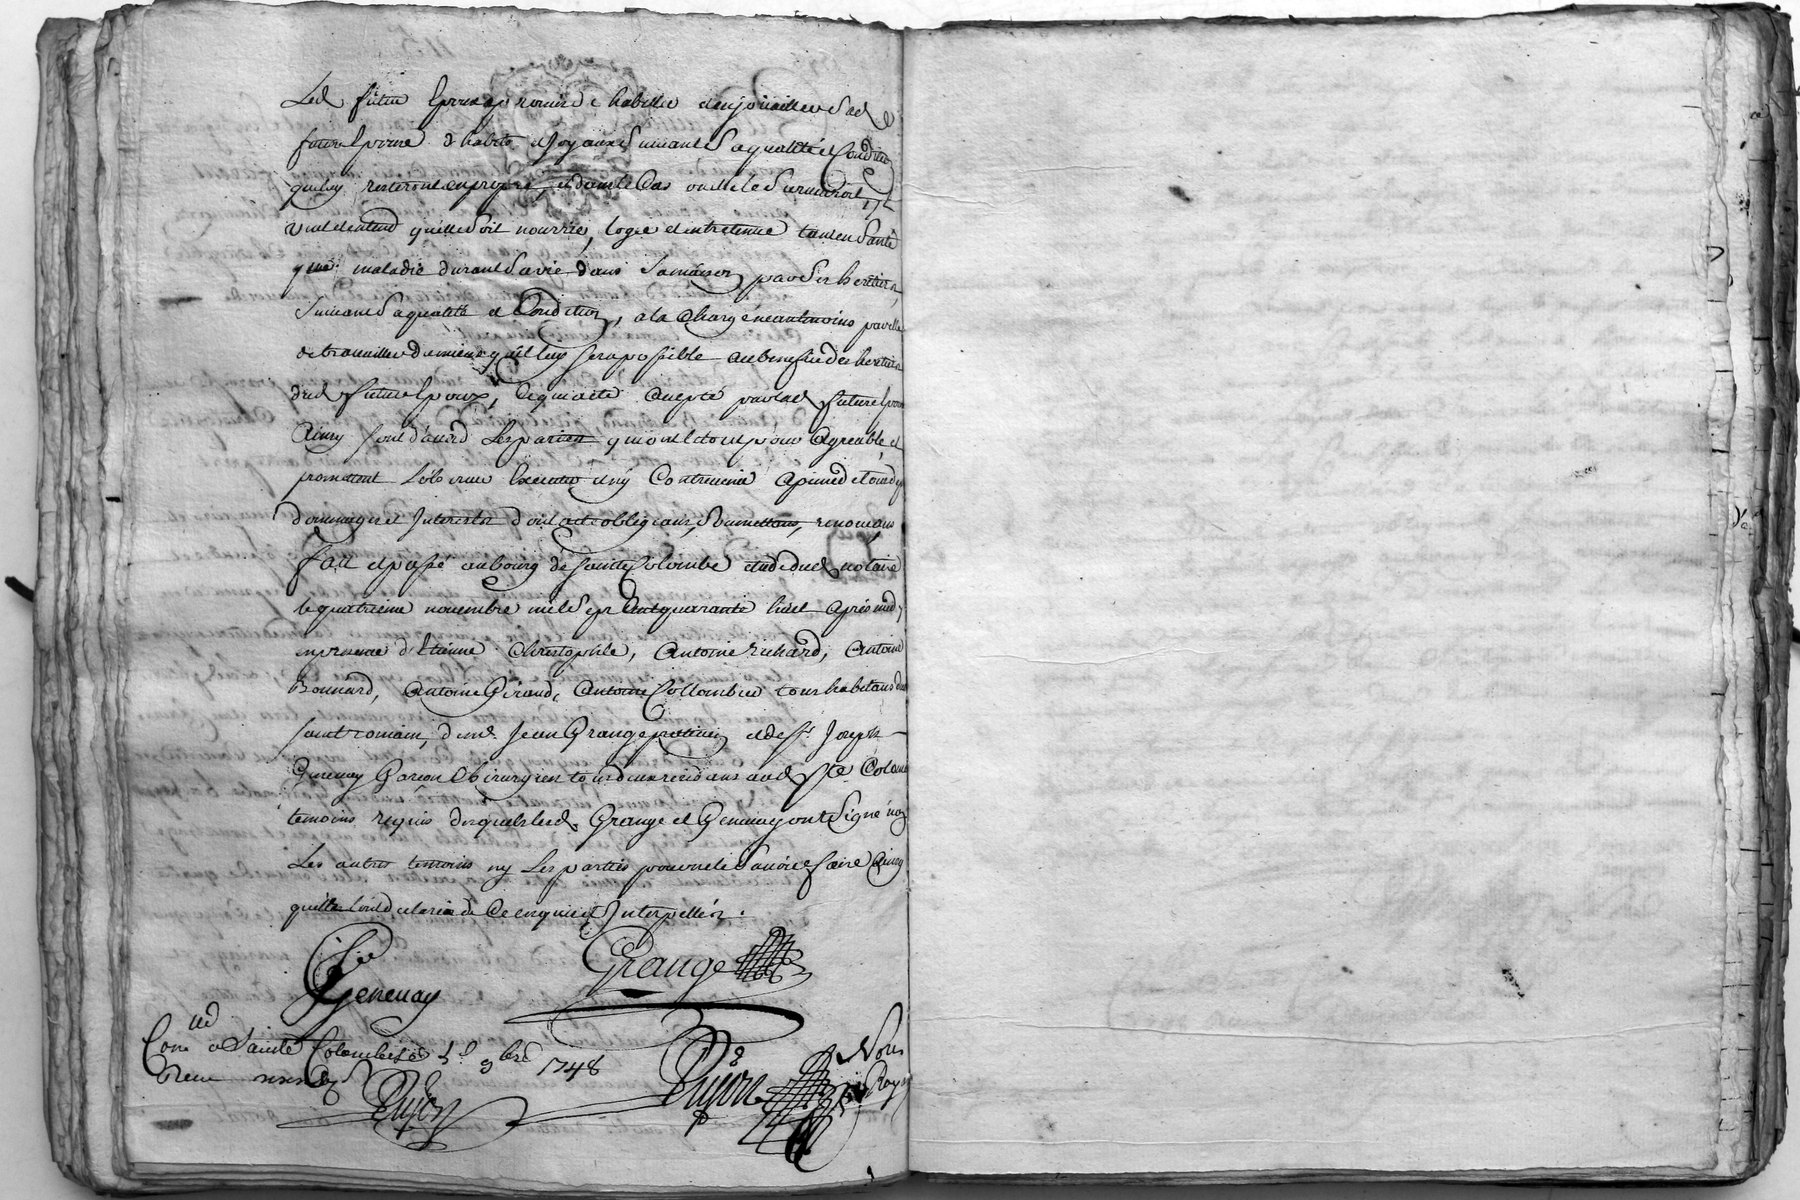 Led futur Epoux promis d'habiller et enjoüailler Lad
future Epouse d'habits et Joyaux Suivant Sa qualité et Condition
qui luy resteront en propre, et dans le Cas ou elle le Survivroit, il
veut et entend qu'elle Soit nourrie, logée et entretenue tant en Santé
que maladie durant Sa vie dans Sa maison par Ses heritiers,
Suivant Sa qualité et Condition, a la Charge neantmoins par elle
de travailler du mieux qu'il luy Sera possible au benefice des heritiers
dud futur Epoux, Ce qui a eté accepté par lad future Epouse
Ainsy Sont d'accord Les parties qui ont le tout pour Agreable, et
promettent L'observer Executer et n'y Contrevenir a peine de tous depens
dommages et Interests dont acte obligeans, Soumettans, renonceans
fait et passé au bourg de Sainte Colombe etude dud notaire
le quatrieme novembre mil Sept Cent quarante huit Après midy,
en presence d'Etienne Christophle, Antoine richard, Antoine
Bonnard, Antoine Giraud, Antoine Collombier tous habitans de
saint romain, de me Jean Grange praticien et de Sr Joseph
Genevay Garcon Chirurgien tous deux residans aud Ste Colombe
temoins requis desquels lesd. Grange et Genevay ont Signé non
Les autres temoins ny Les parties pour ne le Sçavoir faire Ainsy
qu'ils l'ont declaré de Ce enquis et Interpellés.
Genevay Grange
Conlé a Sainte Colombe le 5e 9bre 1748
Reçu
Dujon Dujon
Nore
Roy